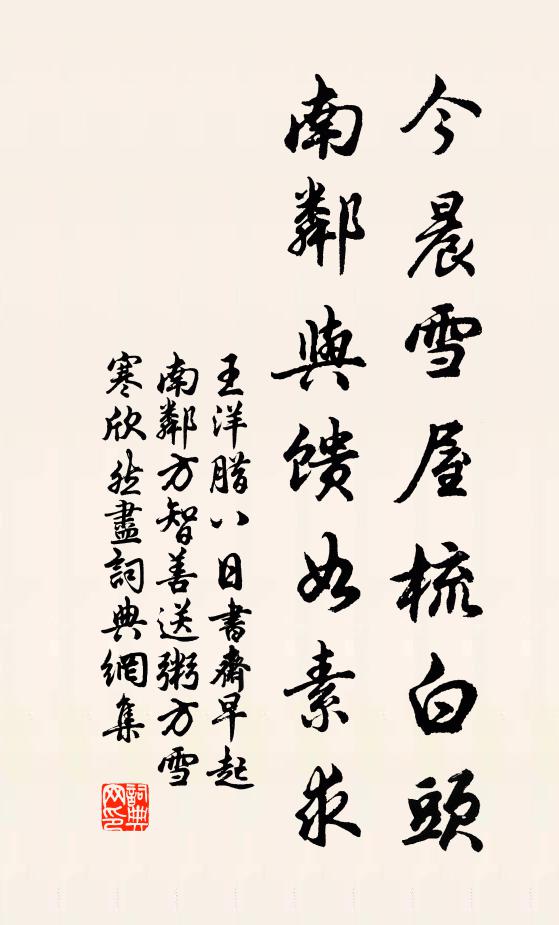 今晨雪屋梳白頭
南鄰與饋如素求
王洋腊八日書齋早起
南鄰方智善送粥方雪
寒欣然盡詞典網集
詞典網印